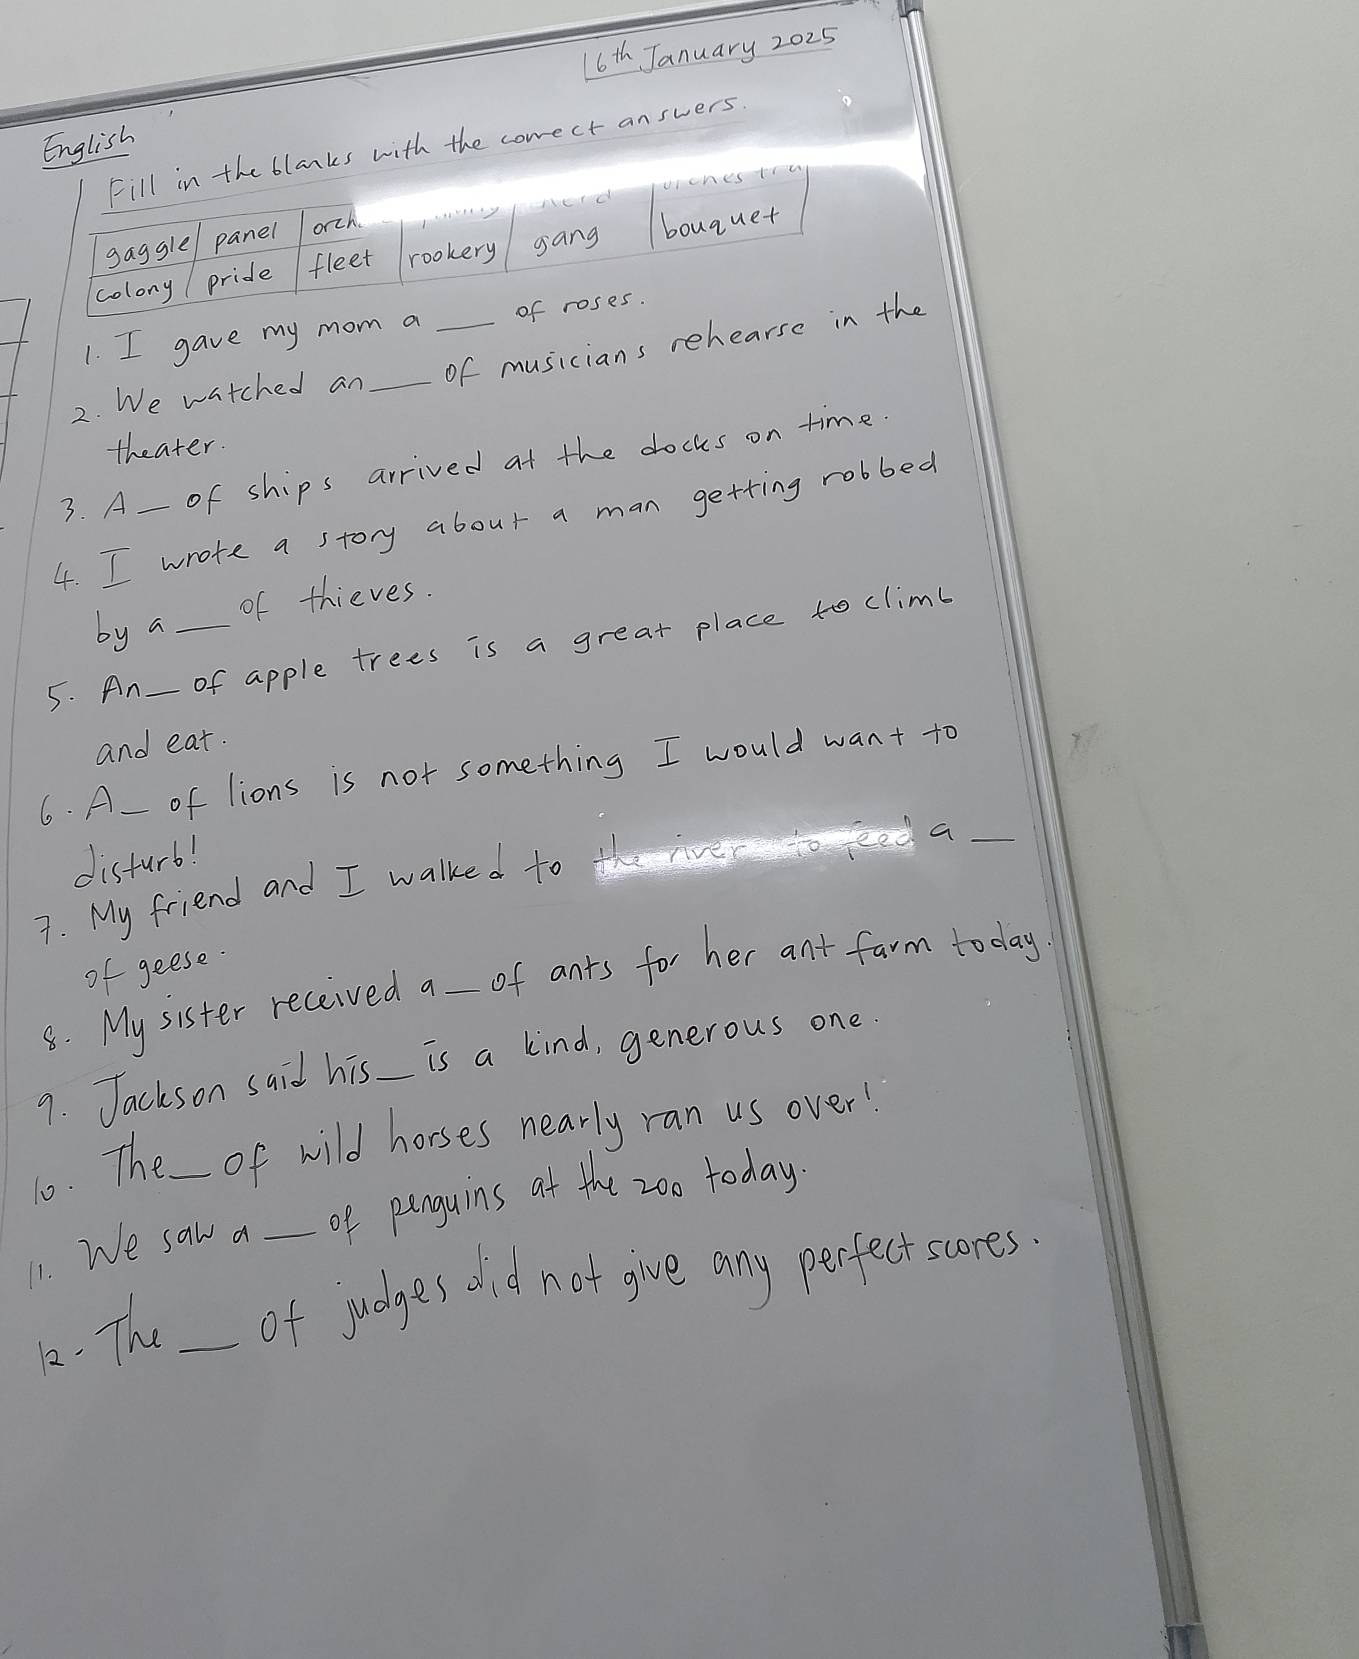 16th January 2025
English
Fill in the blanks with the correct answers.
gaggle panel orch herd orchestra
colony pride fleet rookery gang bouquet
1. I gave my mom a __ of roses.
2. We watched an __ of musicians rehearse in the
theater.
3. A _ of ships arrived at the docks on time.
4. I wrote a story about a man getting robbed
by a __ of thieves.
5. An _ of apple trees is a great place to climb
and eat.
6. A _ of lions is not something I would want to
disturb!
7. My friend and I walked to the river to feed a __
of geese.
8. My sister received a _ of ants for her ant farm today.
9. Jackson said his _ is a kind, generous one.
10. The _ of wild horses nearly ran us over!
11. We saw a __ of penguins at the zoo today.
12. The __ of judges did not give any perfect scores.